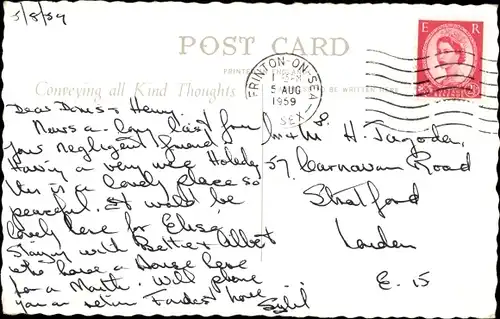 5/8/59
POST CARD
Conveying all Kind Thoughts
BE WRITTEN HERE
E R
FRINTON-ON-SEA
5 AUG
1959
Dear Doris & Henry.
a line from
your negligent friend
Having a very nice Holiday
this is a lovely place so
peaceful. It would be
lovely here for Elise,
Staying with Bettie & Albert
who have a House here
for a Month. Will phone
you on return Fondest love
Sybil
Mr & Mrs H. Jagoda,
57, Carnarvon Road
Stratford
London
E. 15